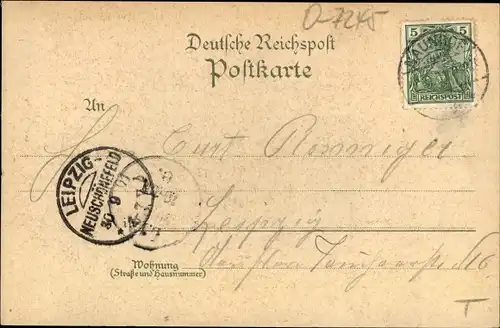 O-7245
Deutsche Reichspost
Postkarte
5 5
REICHSPOST
NAUNHOF
An
Herrn
Curt Ronniger
LEIPZIG-
NEUSCHÖNEFELD
30 9 01
Leipzig
Wohnung
(Straße und Hausnummer)
16
T